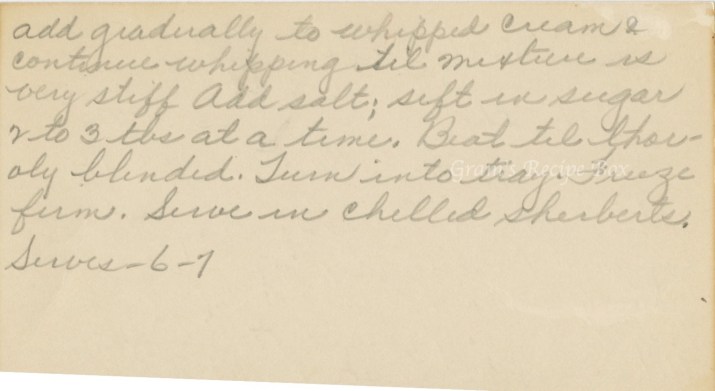 add gradually to whipped cream &
continue whipping til mixture is
very stiff Add salt; sift in sugar
2 to 3 tbs at a time. Beat til thor-
oly blended. Turn into tray. Freeze
firm. Serve in chilled sherberts.
Serves-6-7
Gram's Recipe Box